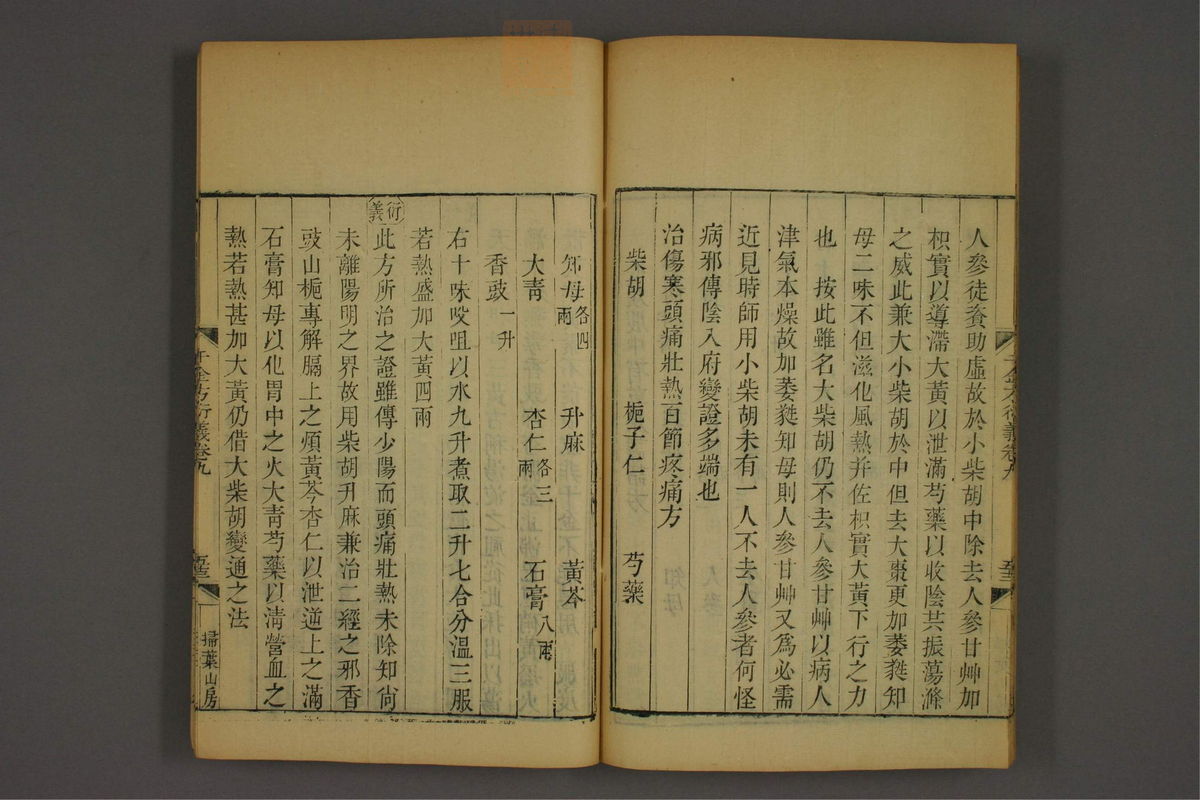 人參徒資助虛故於小柴胡中除去人參甘艸加
枳實以導滯大黃以泄滿芍藥以收陰共振蕩滌
之威此兼大小柴胡於中但去大棗更加萎蕤知
母二味不但滋化風熱并佐枳實大黃下行之力
也 按此雖名大柴胡仍不去人參甘艸以病人
津氣本燥故加萎蕤知母則人參甘艸又為必需
近見時師用小柴胡未有一人不去人參者何怪
病邪傳陰入府變證多端也
治傷寒頭痛壯熱百節疼痛方
柴胡 梔子仁 芍藥
知母各四兩 升麻 黃芩
大青 杏仁各三兩 石膏八兩
香豉一升
右十味㕮咀以水九升煮取二升七合分溫三服
若熱盛加大黃四兩
衍義
此方所治之證雖傳少陽而頭痛壯熱未除知尙
未離陽明之界故用柴胡升麻兼治二經之邪香
豉山梔專解膈上之煩黃芩杏仁以泄逆上之滿
石膏知母以化胃中之火大青芍藥以清營血之
熱若熱甚加大黃仍借大柴胡變通之法
千金方衍義卷九
掃葉山房